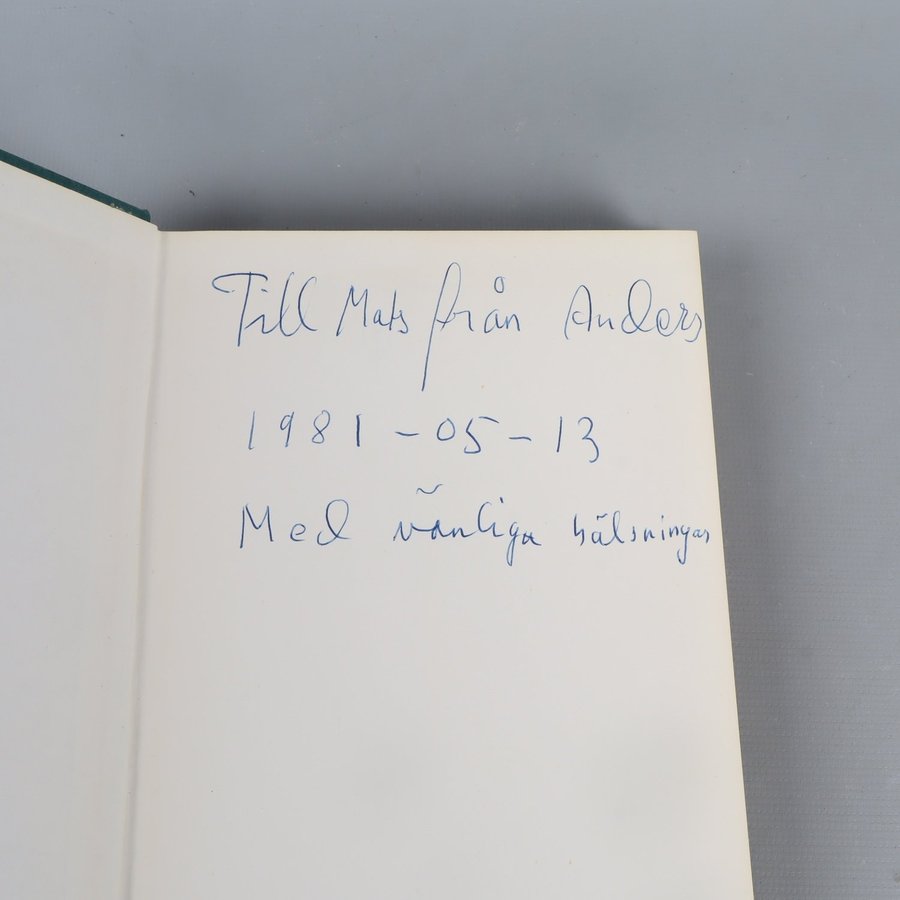 Till Mats från Anders
1981-05-13
Med vänliga hälsningar